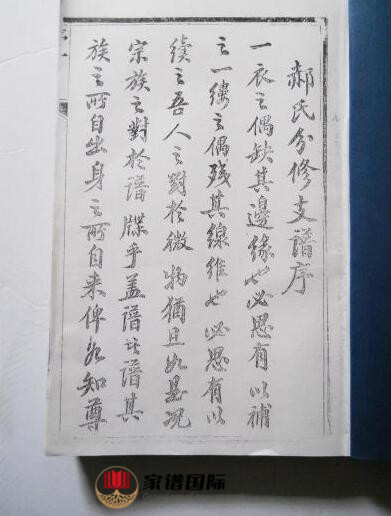 郝氏分修支谱序
一衣之偶缺其邊緣也必思有以補
之一缕之偶残其線維也必思有以
续之吾人之對於微物猶且如是况
宗族之對於谱牒乎盖谱者谱其
族之所自出身之所自来俾知尊
家谱国际